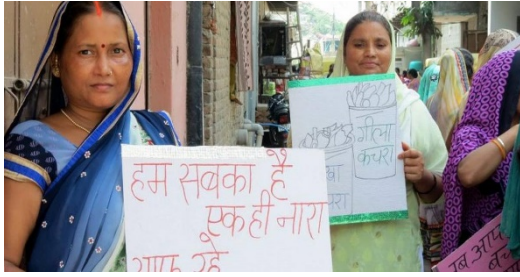 हम सबका है
एक ही नारा
साफ रहे
गीला
कचरा